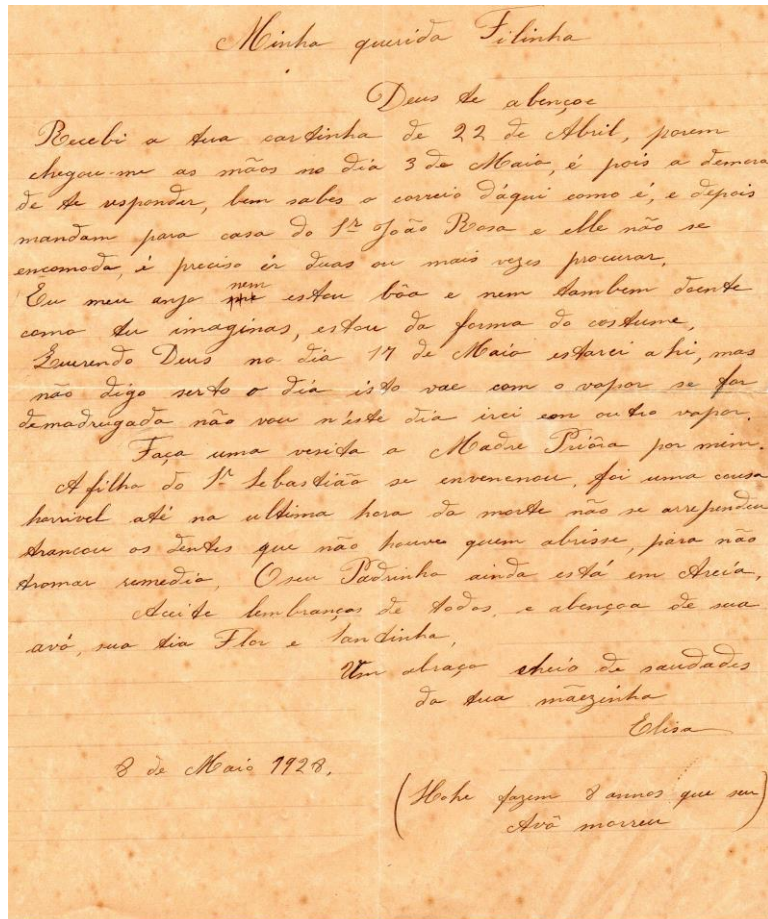 Minha querida Filinha
Deus te abençoe
Recebi a tua cartinha de 22 de Abril, porem
chegou-me as mãos no dia 3 de Maio, é pois a demora
de te responder, bem sabes o correio d'áqui como é, e depois
mandam para casa do Sr João Rosa e elle não se
encomoda, é preciso ir duas ou mais vezes procurar.
Eu meu anjo nem estou bôa e nem tambem doente
como tu imaginas, estou da forma do costume,
Querendo Deus no dia 17 de Maio estarei ahi, mas
não digo serto o dia isto vae com o vapor se for
demadrugada não vou n'éste dia irei con outro vapor.
Faça uma vesita a Madre Priôra por mim.
A filha do Sr Sebastião se envenenou, foi uma cousa
horrivel até na ultima hora da morte não se arrependeu
trancou os dentes que não houve quem abrisse, para não
tromar remedio. O seu Padrinho ainda está em Areia,
Aceite lembranças de todos, e abençoa de sua
avó, sua tia Flor e Santinha,
Um abraço cheio de saudades
da tua mãezinha
Elisa
8 de Maio 1928.
(Hohe fazem 8 annos que seu
Avô morreu)